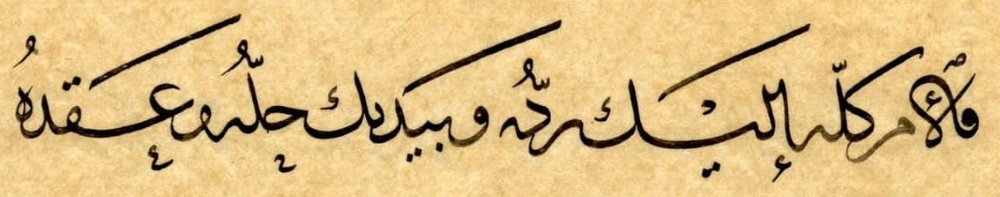 فالأمر كلّه إليك ردّه وبيديك حلّه وعقده